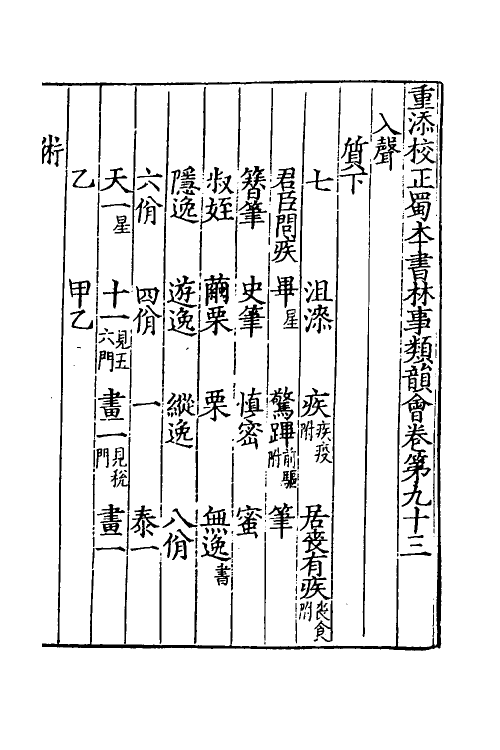 重添校正蜀本書林事類韻會卷第九十三
入聲
質下
七 沮漆 疾疾疫附 居喪有疾喪食附
君臣問疾 畢星 驚蹕前驅附 筆
簪筆 史筆 慎密 蜜
叔姪 繭栗 栗 無逸書
隱逸 遊逸 縱逸 八佾
六佾 四佾 一 泰一
天一星 十一見五六門 畫一見稅門 畫一
乙 甲乙
術